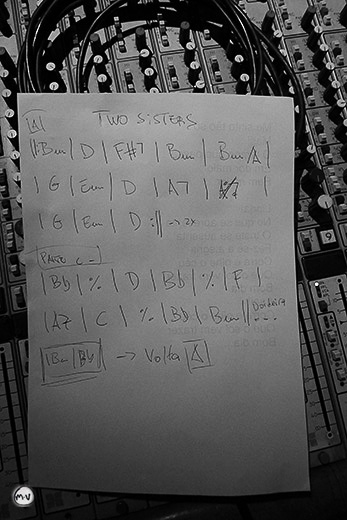 A TWO SISTERS
||Bm | D | F#7 | Bm | Bm/A |
| G | Em | D | A7 | |
| G | Em | D :|| -> 2x
PARTE C -
| Bb | % | D | Bb | % | F |
| A7 | C | % | Bb | Bm || ...
| Bm | Bb | -> Volta A
9
MW